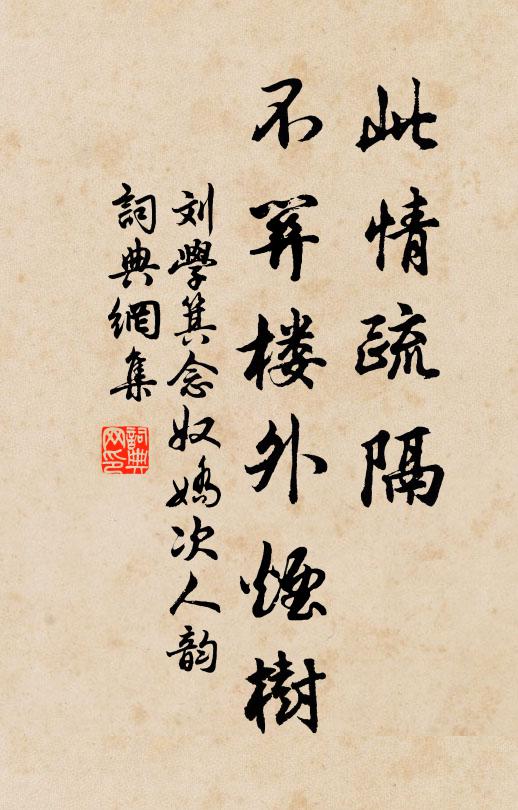 此情疏隔
不算楼外煙樹
刘學箕念奴嬌次人韵
詞典網集
詞典网印